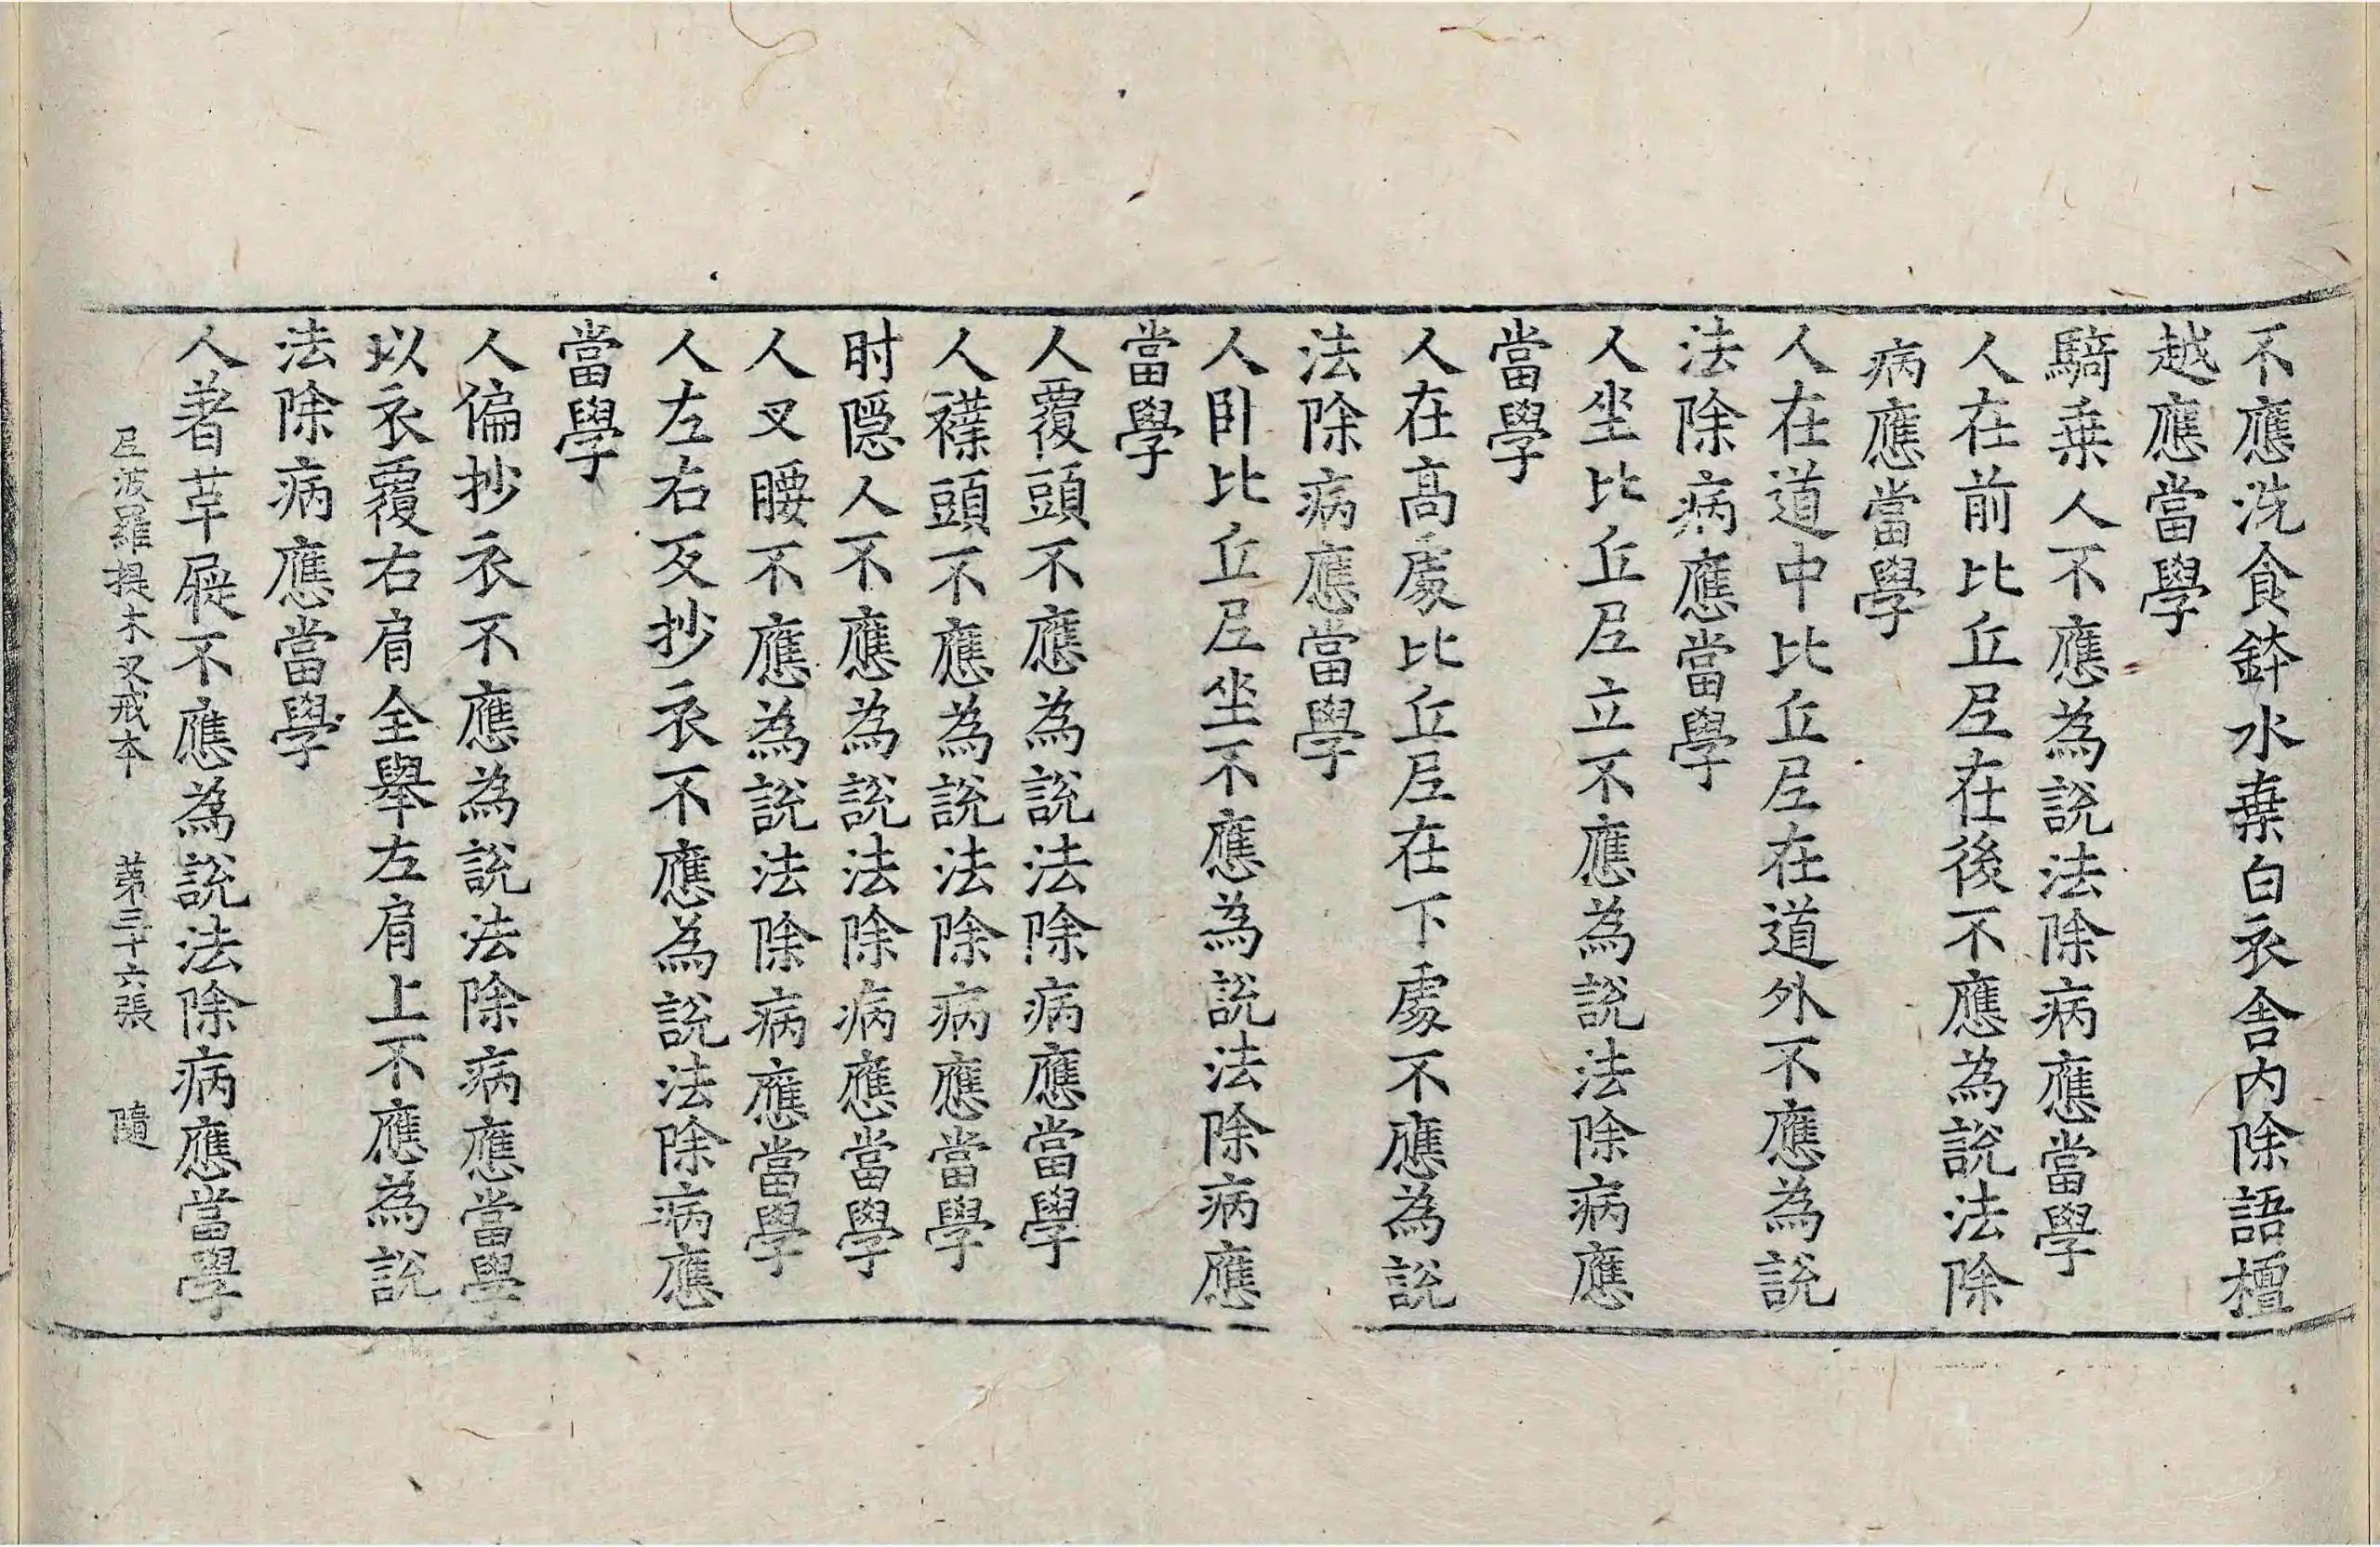 不應洗食鉢水棄白衣舍内除語檀
越應當學
騎乗人不應為說法除病應當學
人在前比丘尼在後不應為說法除
病應當學
人在道中比丘尼在道外不應為說
法除病應當學
人坐比丘尼立不應為說法除病應
當學
人在高處比丘尼在下處不應為說
法除病應當學
人卧比丘尼坐不應為說法除病應
當學
人覆頭不應為說法除病應當學
人襆頭不應為說法除病應當學
肘隱人不應為說法除病應當學
人叉腰不應為說法除病應當學
人左右反抄衣不應為說法除病應
當學
人偏抄衣不應為說法除病應當學
以衣覆右肩全舉左肩上不應為說
法除病應當學
人著革屣不應為說法除病應當學
尼波羅提木叉戒本 第三十六張 隨